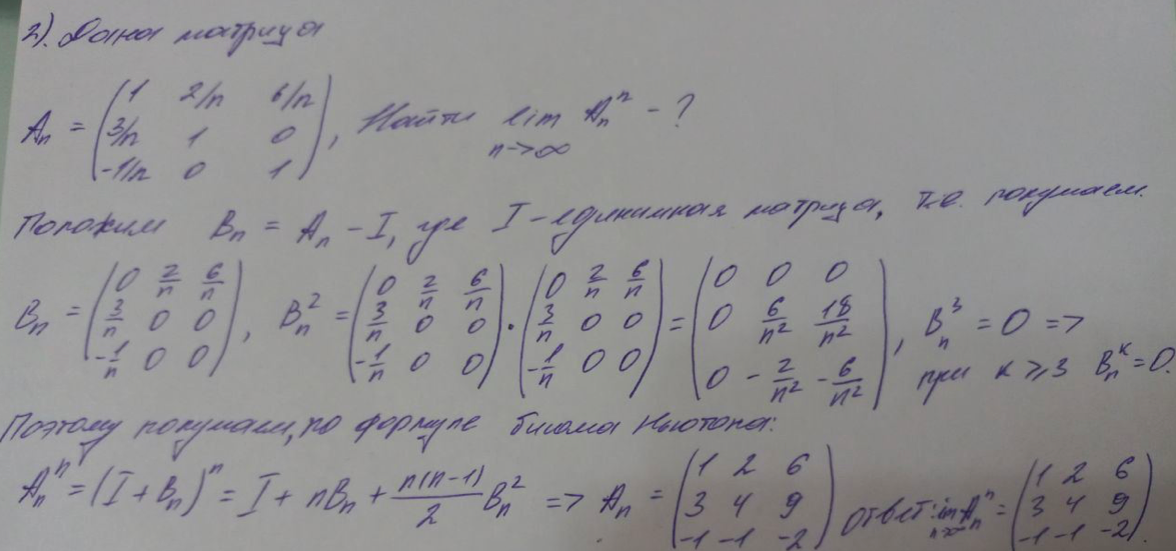 2). Дана матрица
Aₙ = (1 2/n 6/n; 3/n 1 0; -1/n 0 1), Найти lim Aₙⁿ - ?
n->∞
Положим Bₙ = Aₙ - I, где I - единичная матрица, т.е. получаем
Bₙ = (0 2/n 6/n; 3/n 0 0; -1/n 0 0), Bₙ² = (0 2/n 6/n; 3/n 0 0; -1/n 0 0) · (0 2/n 6/n; 3/n 0 0; -1/n 0 0) = (0 0 0; 0 6/n² 18/n²; 0 -2/n² -6/n²), Bₙ³ = 0 =>
при k ⩾ 3 Bₙᵏ = 0.
Поэтому получаем, по формуле бинома Ньютона:
Aₙⁿ = (I + Bₙ)ⁿ = I + nBₙ + n(n-1)/2 Bₙ² => Aₙ = (1 2 6; 3 4 9; -1 -1 -2) Ответ: lim Aₙⁿ = (1 2 6; 3 4 9; -1 -1 -2).
n->∞